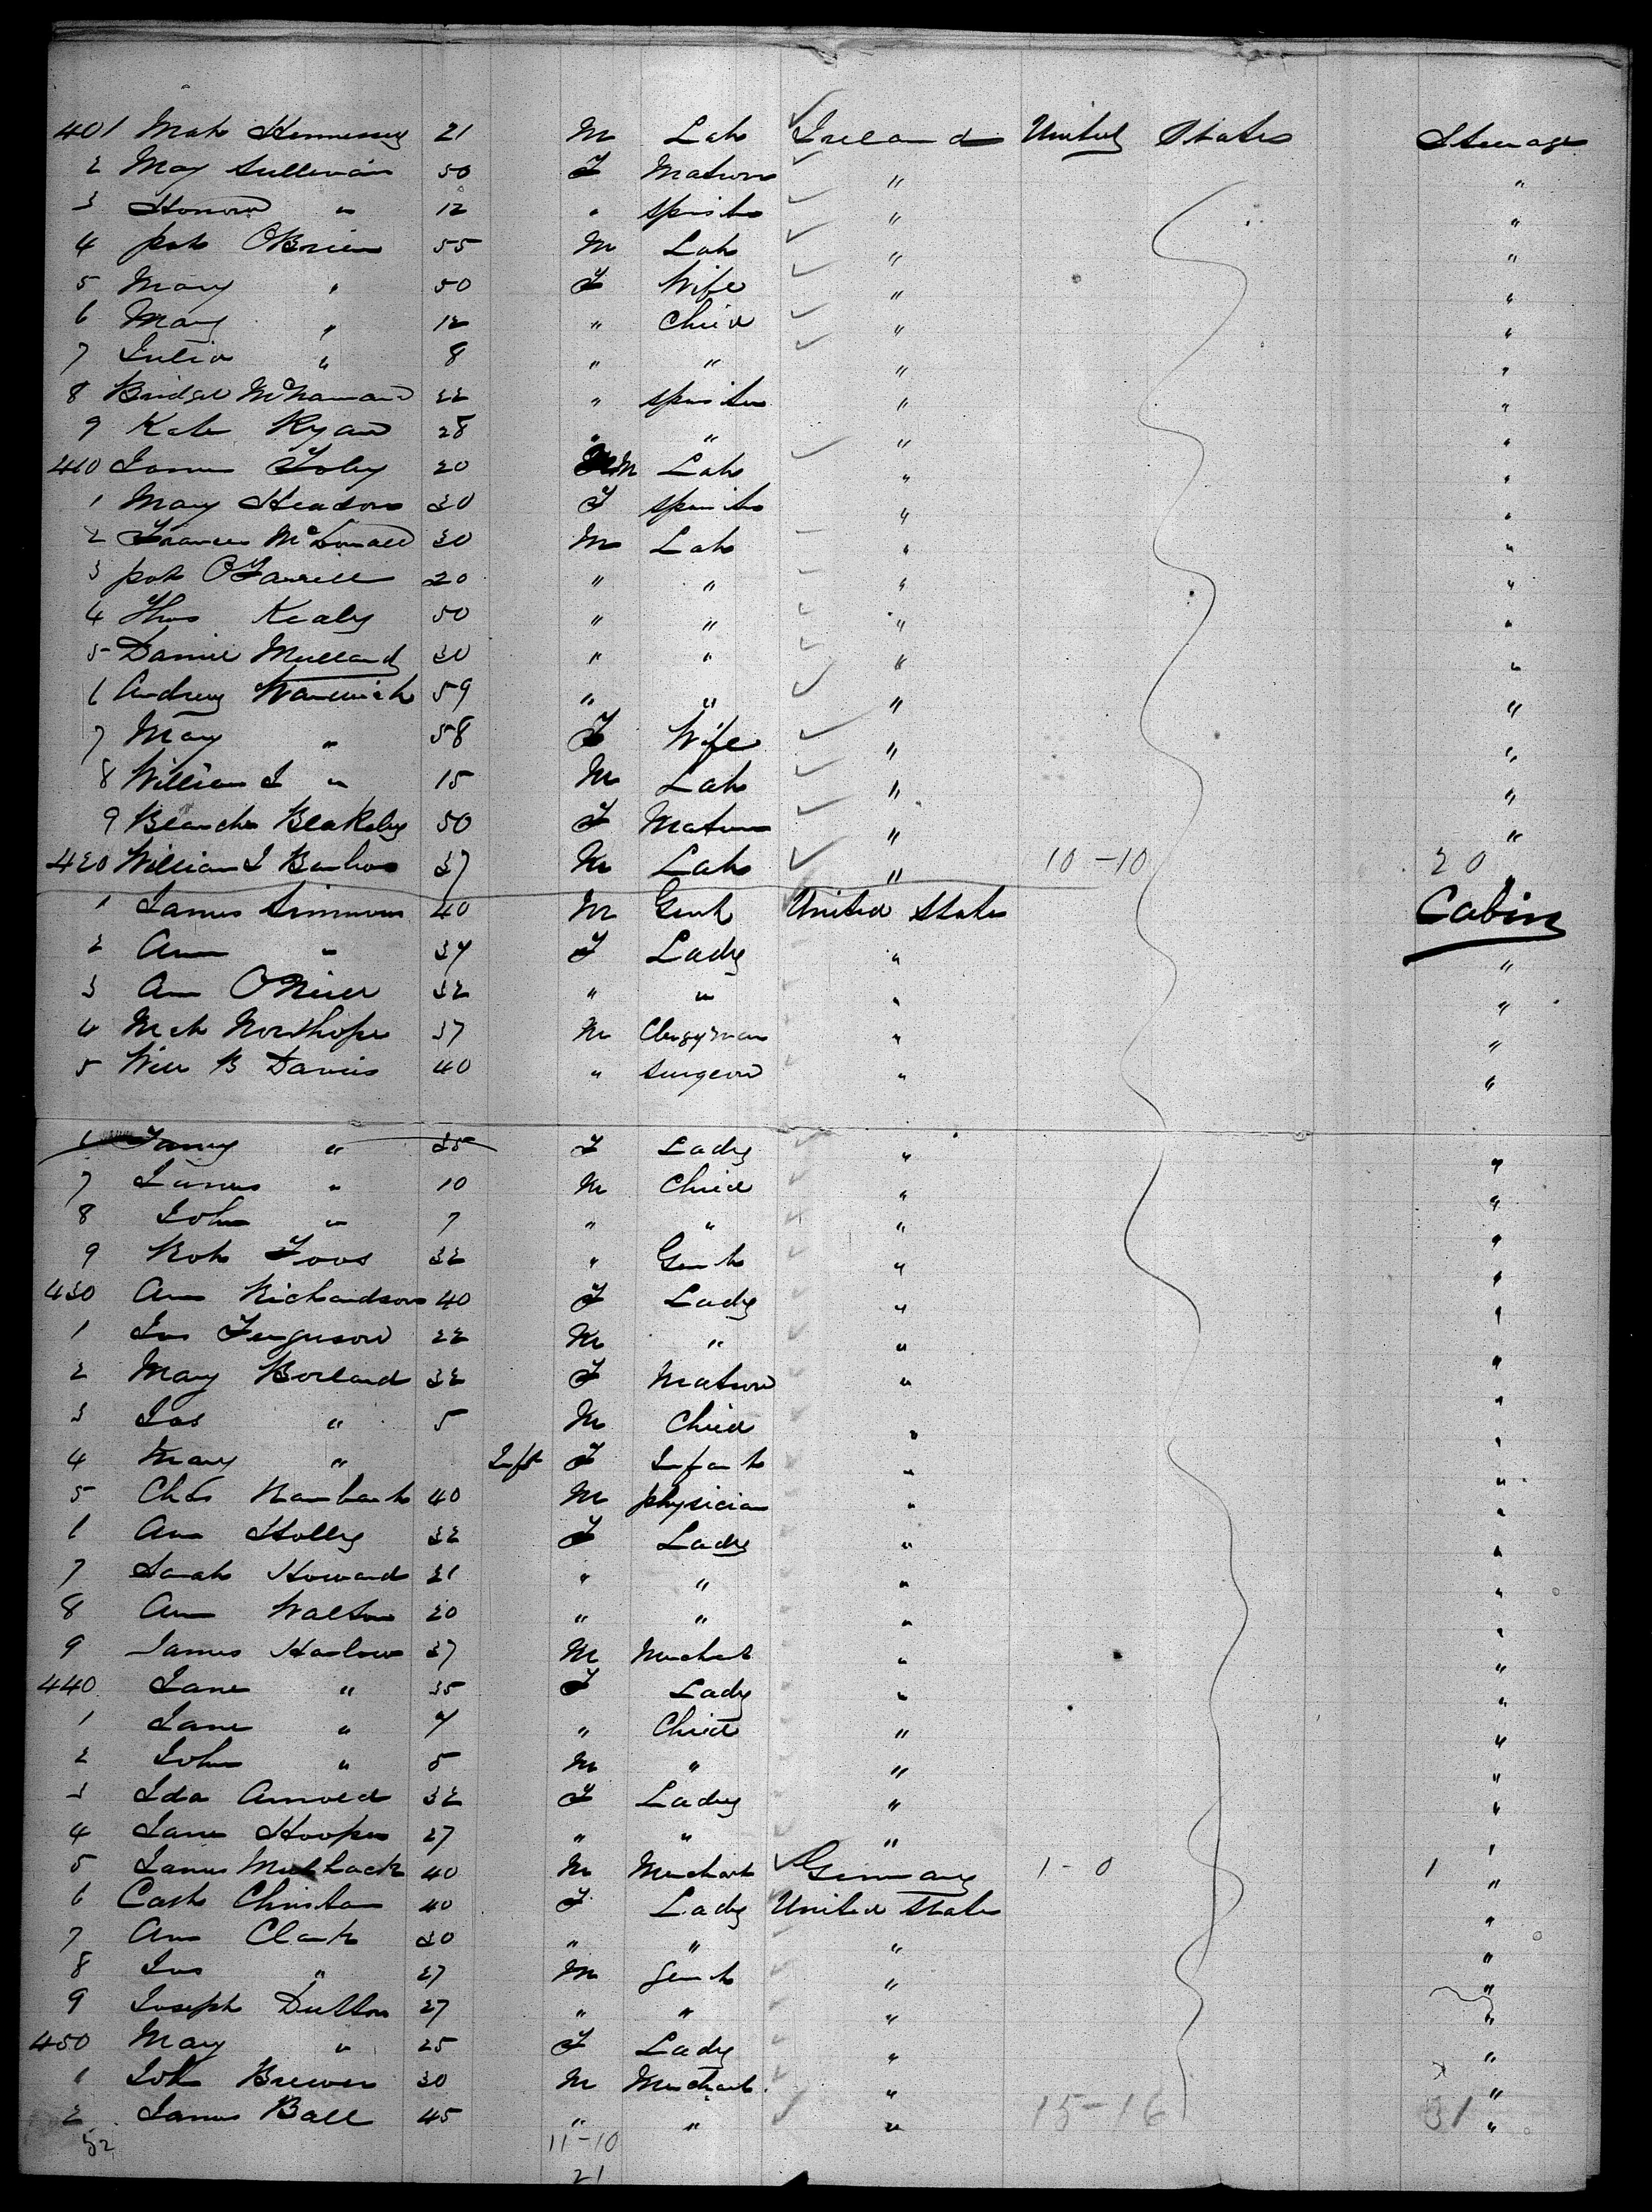 401 Mich Hennessy 21 M Lab Ireland United States Steerage
2 Mary Sullivan 50 F Matron " "
3 Honora " 12 " Spinster " "
4 Pat OBrien 55 M Lab " "
5 Mary " 50 F Wife " "
6 Mary " 12 " Child " "
7 Julia " 8 " " " "
8 Bridget McNamara 22 " Spinster " "
9 Kate Ryan 28 " " " "
410 James Foley 20 M Lab " "
1 Mary Headon 30 F Spinster " "
2 Francis McDonald 30 M Lab " "
3 Pat OFarrell 20 " " " "
4 Thos Kealy 50 " " " "
5 Daniel 30 " " " "
6 Andrew Warwick 59 " " " "
7 Mary " 58 F Wife " "
8 William J " 15 M Lab " "
9 Blanche Blakeley 50 F Matron " "
420 William J 37 M Lab " 10-10 20 "
1 James Simmons 40 M Gent United States Cabin
2 Ann " 34 F Lady " "
3 Ann ONeill 32 " " " "
4 Northope 37 M Clergyman " "
5 Will B Davis 40 " Surgeon " "
6 Fanny " 35 F Lady " "
7 James " 10 M Child " "
8 John " 7 " " " "
9 Robt Foos 32 " Gent " "
430 Ann Richardson 40 F Lady " "
1 Jno Ferguson 22 M " " "
2 Mary Borland 32 F Matron " "
3 Jas " 5 M Child " "
4 Mary " Inft F Infant " "
5 Chas 40 M Physician " "
6 Ann Holly 32 F Lady " "
7 Sarah Howard 21 " " " "
8 Ann Walton 20 " " " "
9 James Harlow 37 M Merchant " "
440 Jane " 35 F Lady " "
1 Jane " 7 " Child " "
2 John " 5 M " " "
3 Ida Arnold 32 F Lady " "
4 Jane Hooper 27 " " " "
5 James 40 M Merchant Germany 1-0 1 "
6 Cath 40 F Lady United States "
7 Ann Clark 30 " " " "
8 Jno " 27 M Gent " "
9 Joseph Dutton 27 " " " "
450 Mary " 25 F Lady " "
1 Joh Brewer 30 M Merchant " "
2 James Ball 45 " " " 15-16 31 "
52 11-10
21